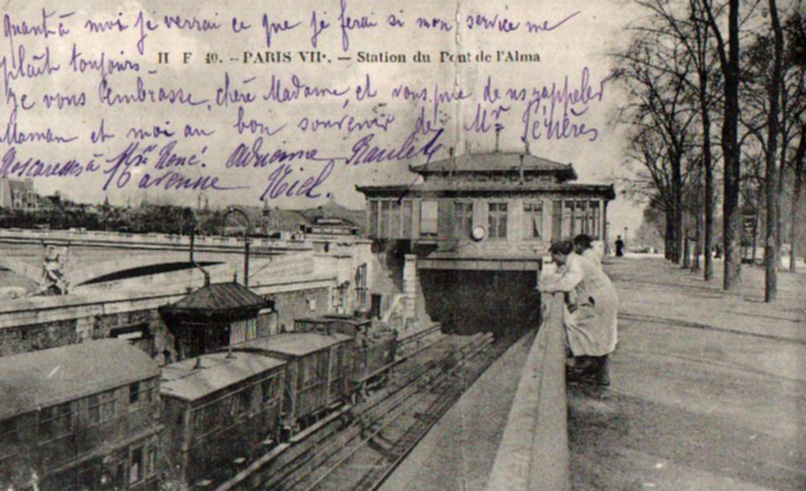 Quant à moi je verrai ce que je ferai si mon service me
plaît toujours
H F 40. – PARIS VIIe. – Station du Pont de l'Alma
Je vous embrasse, chère Madame, et vous prie de ns rappeler
Maman et moi au bon souvenir de Mr
Mes caresses à René. Adrienne Raulet
16 avenue Niel.